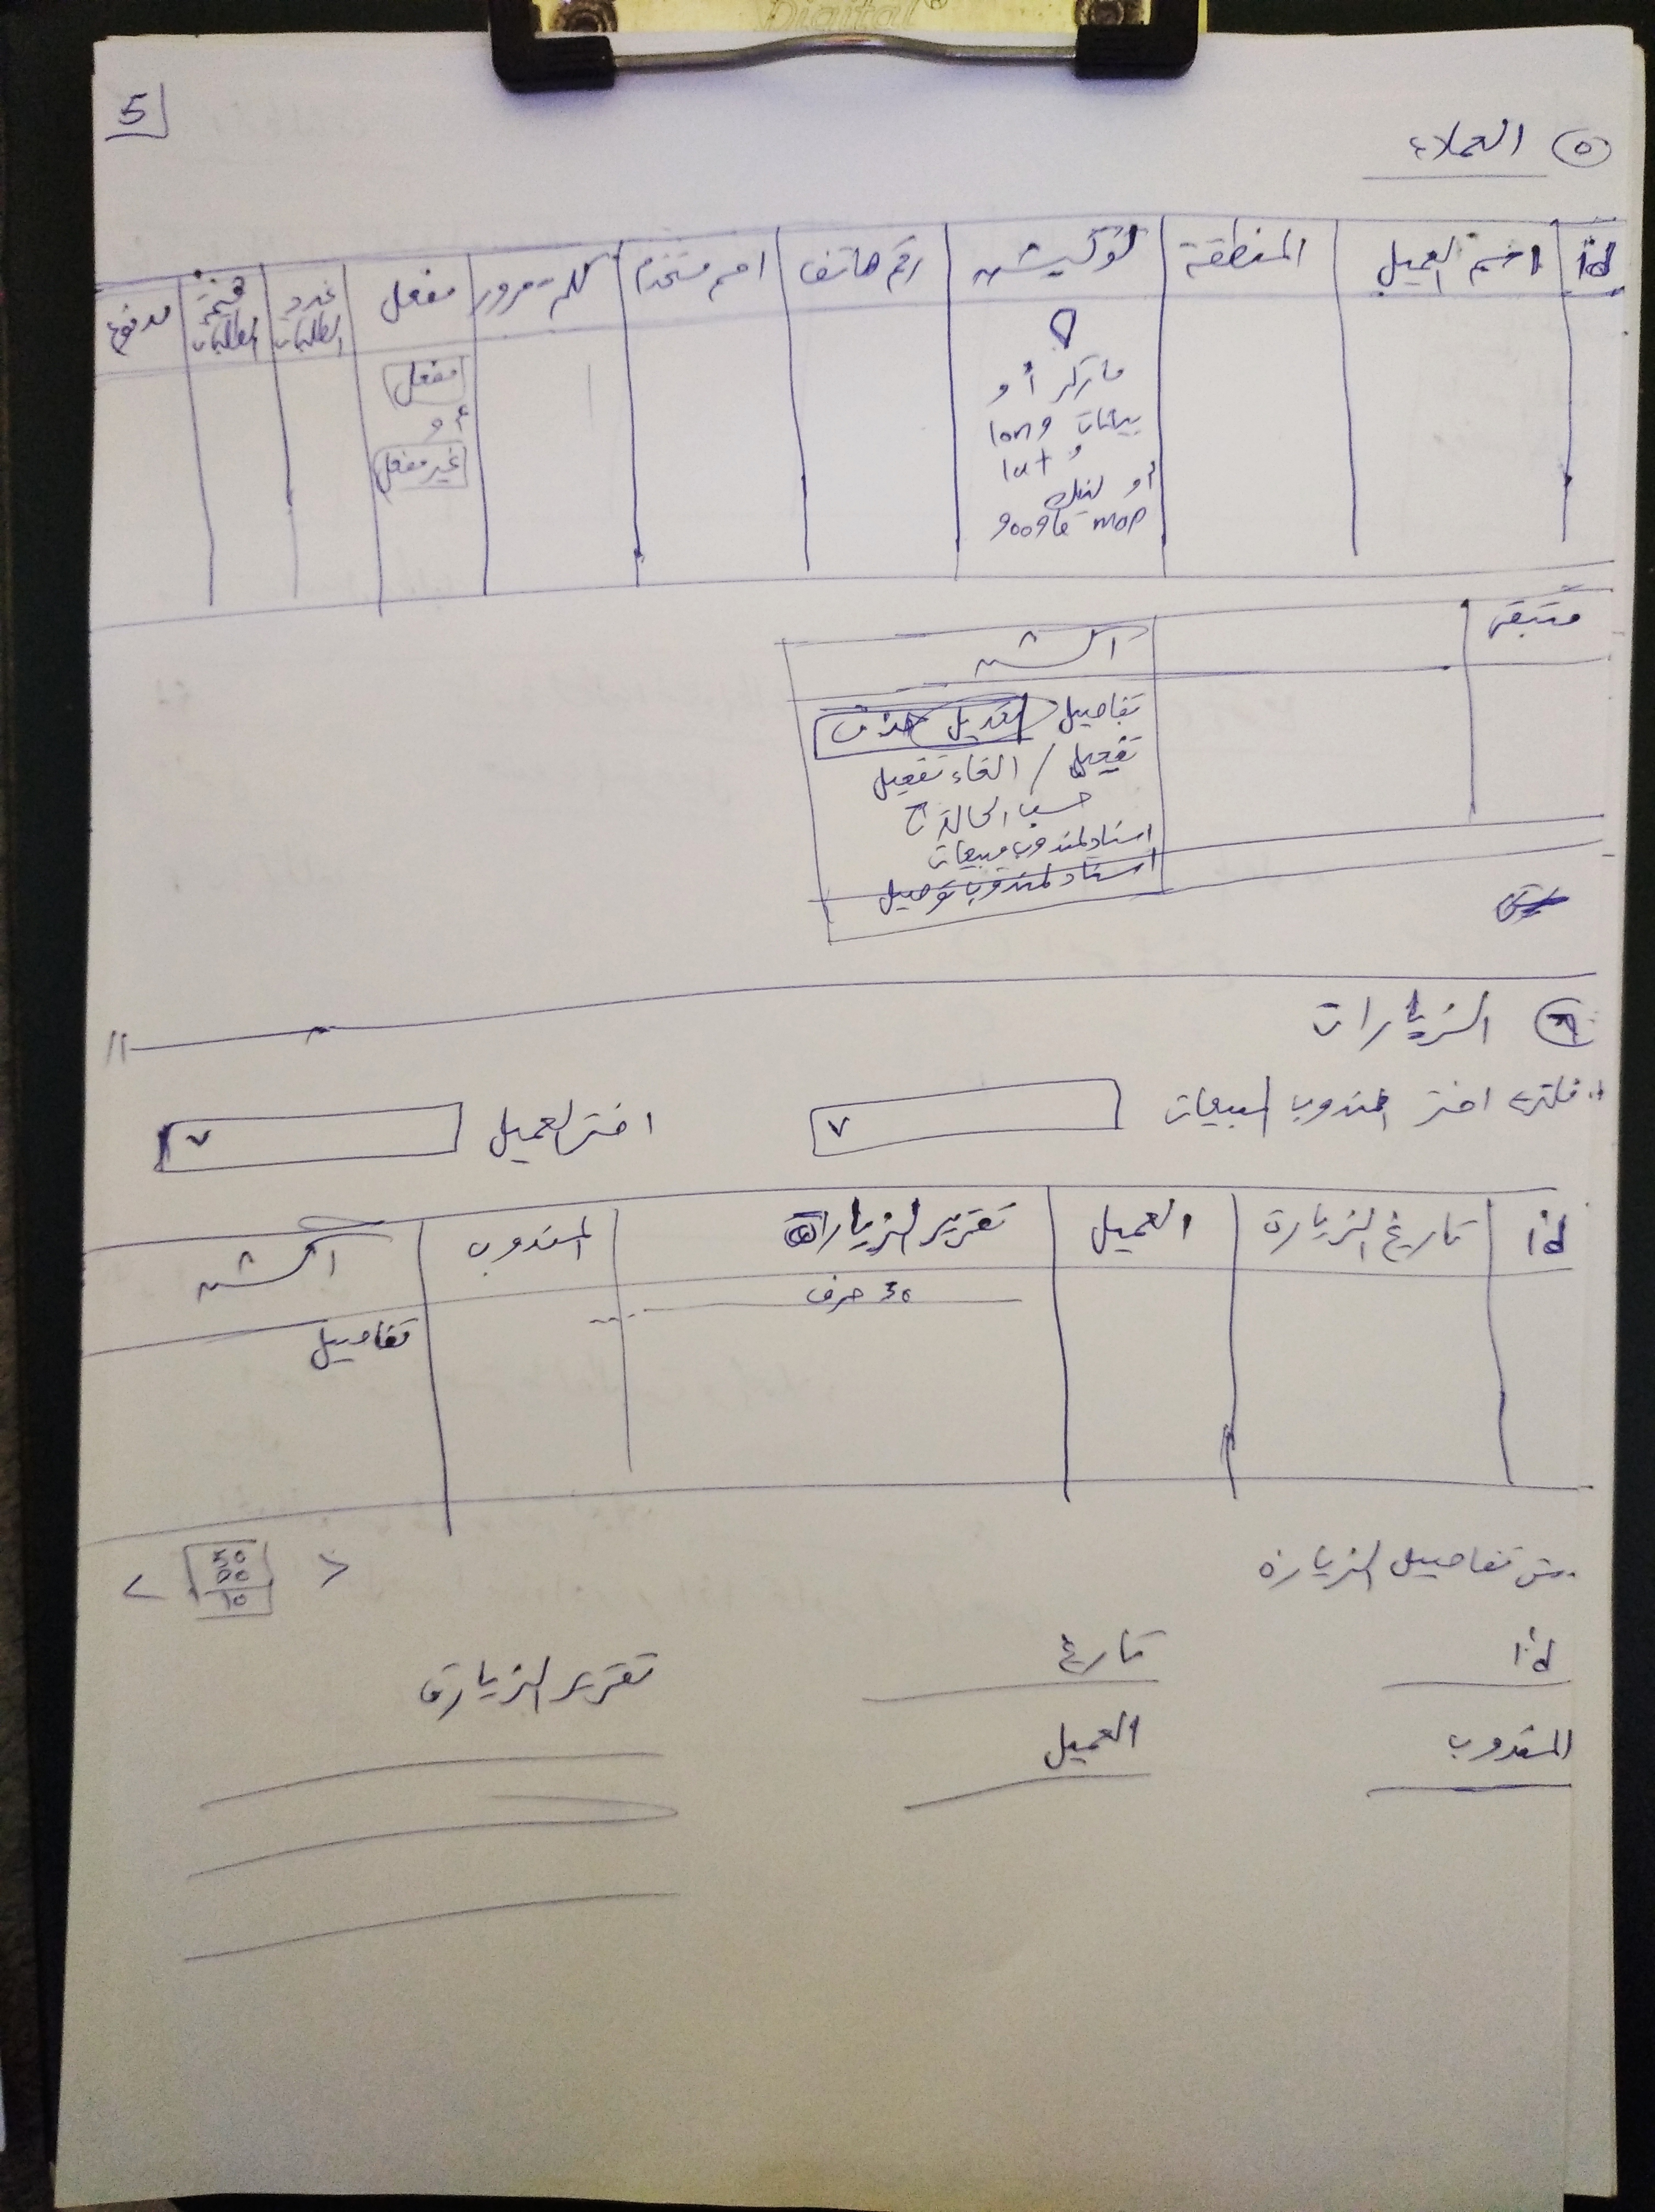 Digital®
5
٥ العملاء
id اسم العميل المنطقة لوكيشن رقم هاتف اسم مستخدم كلمة مرور مفعل عدد الطلبات قيمة الطلبات مدفوع
ماركر أو
بيانات long
و lat
أو لينك
google map
مفعل
أو
غير مفعل
متبقى
اكشن
تفاصيل تعديل حذف
تفعيل / الغاء تفعيل
حسب الحالة
اسناد لمندوب مبيعات
اسناد لمندوب توصيل
٦ الزيارات
فلترة اختر مندوب المبيعات ٧ اختر العميل ٧
id تاريخ الزيارة العميل تقرير الزيارة المندوب اكشن
30 حرف ...
تفاصيل
تفاصيل الزيارة
< 50 >
20
10
id تاريخ تقرير الزيارة
المندوب العميل